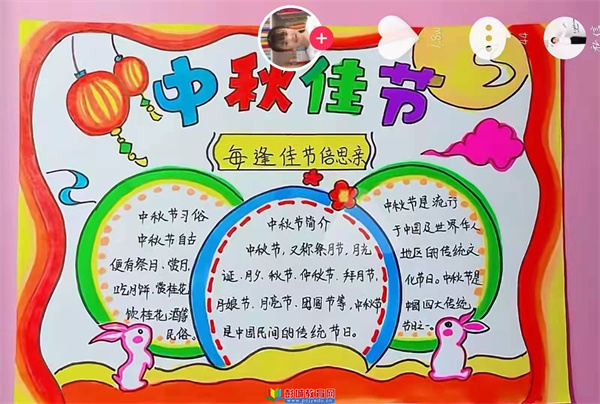 中秋佳节
每逢佳节倍思亲
中秋节习俗
中秋节自古
便有祭月、赏月、
吃月饼、赏桂花、
饮桂花酒等
民俗。
中秋节简介
中秋节,又称祭月节、月光
诞、月夕、秋节、仲秋节、拜月节、
月娘节、月亮节、团圆节等,中秋节
是中国民间的传统节日。
中秋节是流行
于中国及世界华人
地区的传统文
化节日。中秋节是
中国四大传统
节日之一。
1.8w
44
彭城教育网